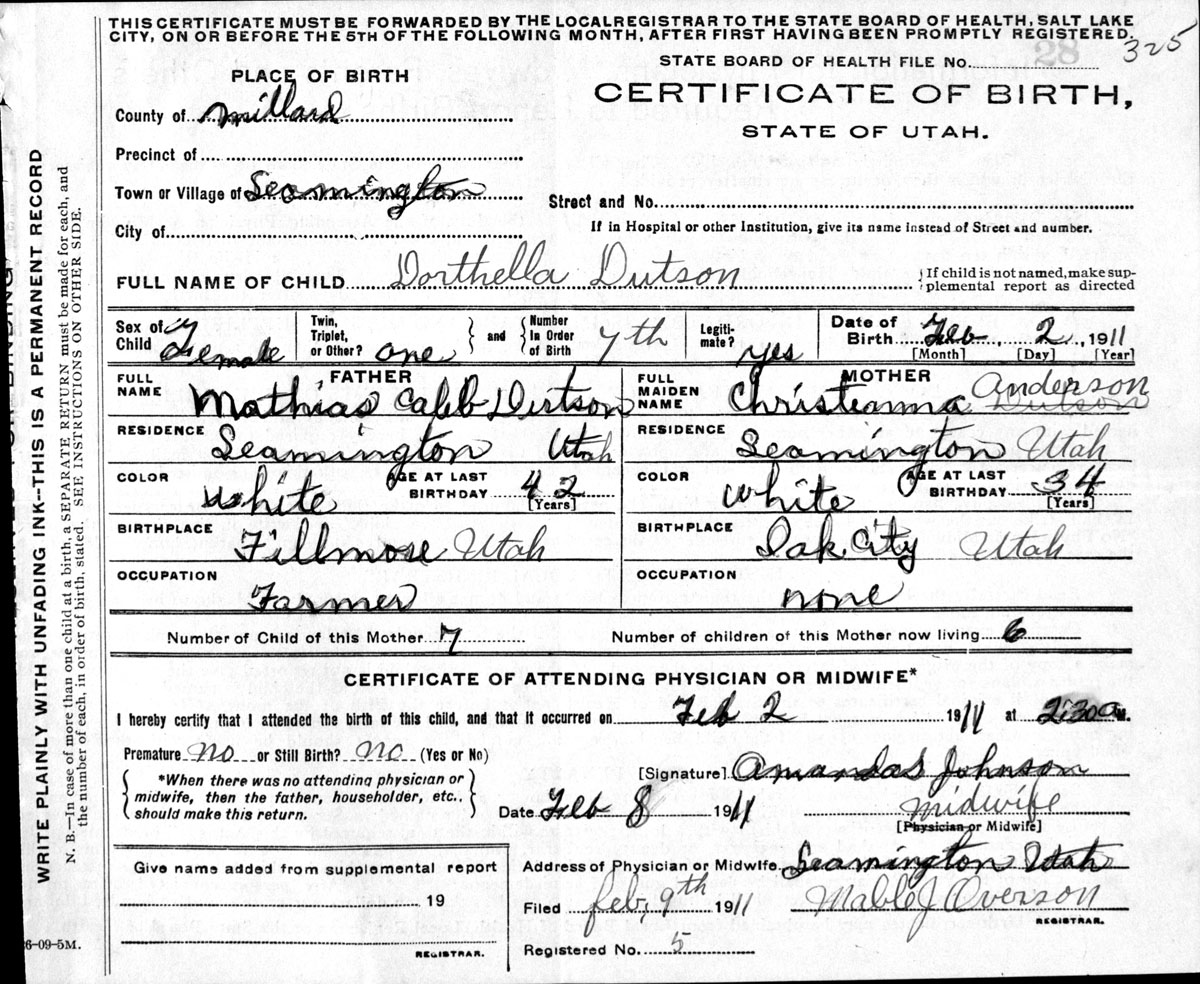 THIS CERTIFICATE MUST BE FORWARDED BY THE LOCAL REGISTRAR TO THE STATE BOARD OF HEALTH, SALT LAKE
CITY, ON OR BEFORE THE 5TH OF THE FOLLOWING MONTH, AFTER FIRST HAVING BEEN PROMPTLY REGISTERED.
325
STATE BOARD OF HEALTH FILE No. 28
PLACE OF BIRTH
CERTIFICATE OF BIRTH,
STATE OF UTAH.
County of Millard
Precinct of
Town or Village of Leamington
Street and No.
City of
If in Hospital or other Institution, give its name instead of Street and number.
FULL NAME OF CHILD Dorthella Dutson
If child is not named, make sup-
plemental report as directed
Sex of Child Female
Twin, Triplet, or Other? one
and Number In Order of Birth 7th
Legiti- mate? yes
Date of Birth Feb 2, 1911
[Month] [Day] [Year]
FATHER
FULL NAME Mathias Caleb Dutson
MOTHER
FULL MAIDEN NAME Christeanna Dutson Anderson
RESIDENCE Leamington Utah
RESIDENCE Leamington Utah
COLOR White
AGE AT LAST BIRTHDAY 42
[Years]
COLOR White
AGE AT LAST BIRTHDAY 34
[Years]
BIRTHPLACE Fillmore Utah
BIRTHPLACE Oak City Utah
OCCUPATION Farmer
OCCUPATION none
Number of Child of this Mother 7
Number of children of this Mother now living 6
CERTIFICATE OF ATTENDING PHYSICIAN OR MIDWIFE*
I hereby certify that I attended the birth of this child, and that it occurred on Feb 2 1911 at 2:30 a M.
Premature no or Still Birth? no (Yes or No)
*When there was no attending physician or
midwife, then the father, householder, etc.,
should make this return.
[Signature] Amanda S Johnson
Date Feb 8 1911
midwife
[Physician or Midwife]
Give name added from supplemental report
19
REGISTRAR.
Address of Physician or Midwife Leamington Utah
Filed feb, 9th 1911
Mable J Overson
REGISTRAR.
Registered No. 5
26-09-5M.
WRITE PLAINLY WITH UNFADING INK--THIS IS A PERMANENT RECORD
N. B.--In case of more than one child at a birth, a SEPARATE RETURN must be made for each, and
the number of each, in order of birth, stated. SEE INSTRUCTIONS ON OTHER SIDE.